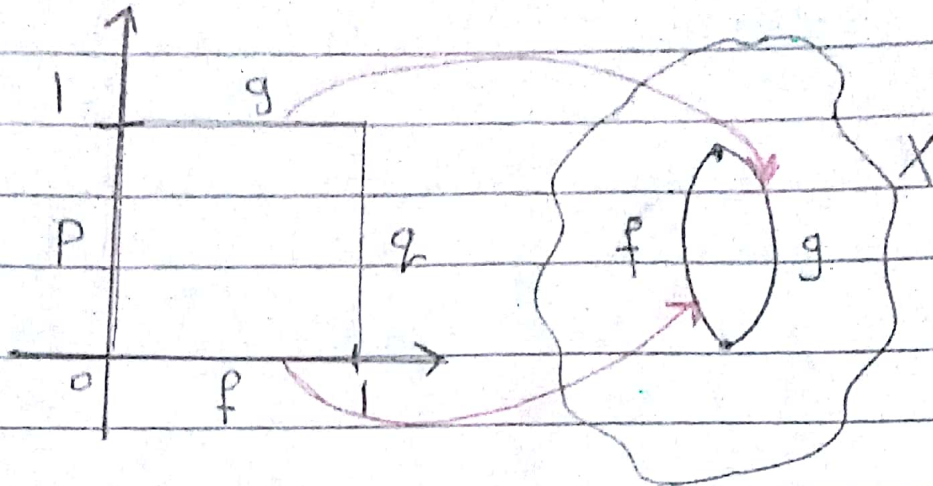 1 g
X
P q f g
0 f 1